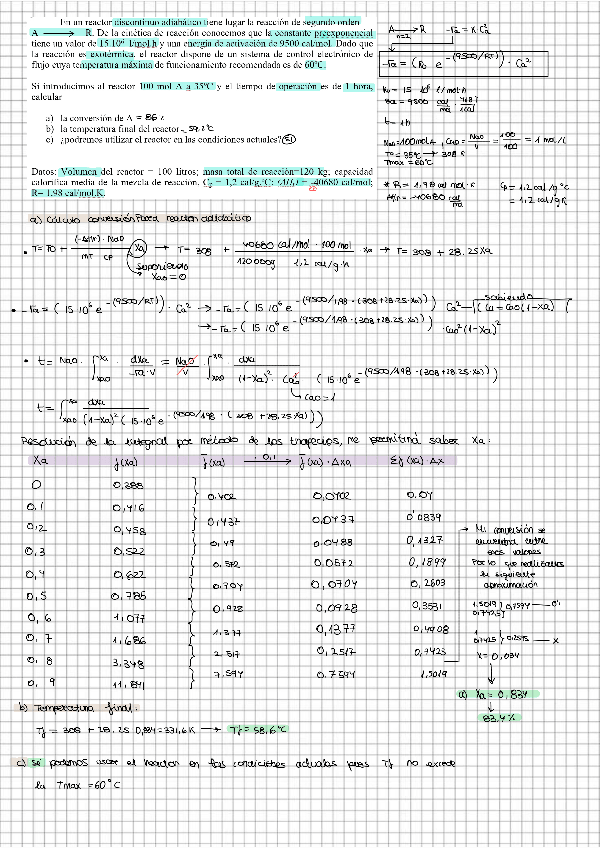 En un reactor discontinuo adiabático tiene lugar la reacción de segundo orden
A ⟶ R. De la cinética de reacción conocemos que la constante preexponencial
tiene un valor de 15·10⁶ l/mol.h y una energía de activación de 9500 cal/mol. Dado que
la reacción es exotérmica, el reactor dispone de un sistema de control electrónico de
flujo cuya temperatura máxima de funcionamiento recomendada es de 60ºC.
Si introducimos al reactor 100 mol A a 35ºC y el tiempo de operación es de 1 hora,
calcular
a) la conversión de A = 86 %
b) la temperatura final del reactor
c) ¿podremos utilizar el reactor en las condiciones actuales? Sí
Datos: Volumen del reactor = 100 litros; masa total de reacción=120 kg; capacidad
calorífica media de la mezcla de reacción, Cp = 1,2 cal/g.ºC; (ΔHr) = -40680 cal/mol;
R= 1,98 cal/mol.K.
A ⟶ R
n=2
-ra = K Ca²
-ra = (K₀ e^-(9500/RT)) · Ca²
K₀ = 15·10⁶ l/mol·h
Ea = 9500 cal/mol
t = 1h
Nao=100molA, Cao = Nao/V = 100/100 = 1 mol/L
T₀ = 35ºC → 308 K
Tmax = 60ºC
* R = 1,98 cal/mol·K
ΔHr = -40680 cal/mol
Cp = 1,2 cal/gºC
= 1,2 cal/gK
a) Cálculo conversión para reactor adiabático
• T = T0 + (-ΔHr)·Nao / mT·CP · (Xa) → T = 308 + 40680 cal/mol · 100 mol / 120000g · 1,2 cal/g·K · Xa → T = 308 + 28.25Xa
suponiendo
Xao = 0
• -ra = (15·10⁶ e^-(9500/RT)) · Ca² → -ra = (15·10⁶ e^-(9500/1,98·(308+28.25·Xa))) Ca²
sabiendo
Ca = Cao(1-Xa)
→ -ra = (15·10⁶ e^-(9500/1,98·(308+28.25·Xa))) · Cao²(1-Xa)²
• t = Nao · ∫Xao^Xa dXa / -ra·V = Nao/V · ∫Xao^Xa dXa / (1-Xa)² · Cao² (15·10⁶ e^-(9500/1,98·(308+28.25·Xa)))
Cao=1
t = ∫Xao^Xa dXa / (1-Xa)² (15·10⁶ e^-(9500/1,98·(308+28.25Xa)))
Resolución de la integral por método de los trapecios, me permitirá saber Xa:
Xa f(Xa) f̄(Xa) ·0,1 ⟶ f̄(Xa)·ΔXa Σf̄(Xa)·Δx
0 0,388
0.402 0,0402 0.04
0,1 0,416
0,437 0,0437 0'0839
0,2 0,458
0,49 0.0488 0,1327
0,3 0,522
0.572 0,0572 0,1899
0,4 0,622
0.704 0,0704 0,2603
0,5 0,785
0.928 0,0928 0,3531
0,6 1,077
1,377 0,1377 0,4908
0,7 1,686
2.517 0,2517 0,7425
0,8 3,348
7.594 0.7594 1,5019
0,9 11,841
Mi conversión se
encuentra entre
esos valores
Por lo que realizamos
la siguiente
aproximación
1.5019
0,7425 } 0,7594 — 0'1
1
0,7425 } 0,2575 — X
X = 0,034
a) Xa = 0,834
83,4%
b) Temperatura final.
Tf = 308 + 28.25 0,834 = 331,6K ⟶ Tf = 58,6ºC
c) Sí podemos usar el reactor en las condiciones actuales pues Tf no excede
la Tmax = 60ºC